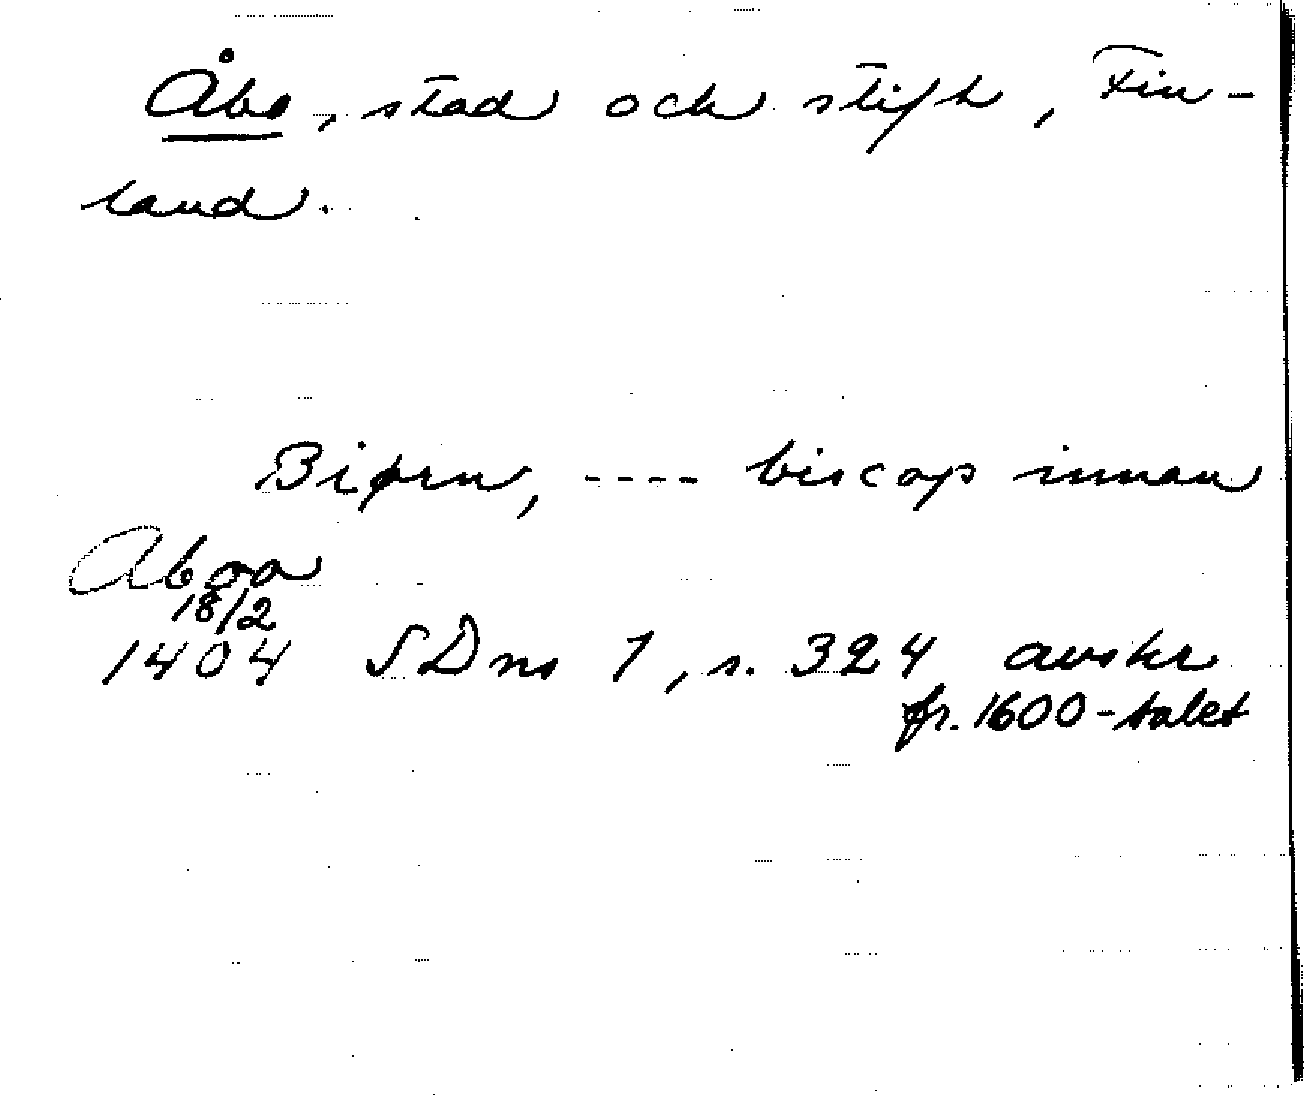 Åbo, stad och stift, Fin-
land.
Biørn, ---- biscop innan
Aboa
18/2
1404 SDns 1, s. 324 avskr
fr. 1600-talet